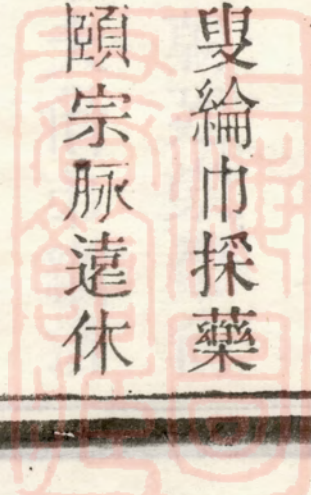 叟綸巾採藥
頤宗脉遠休